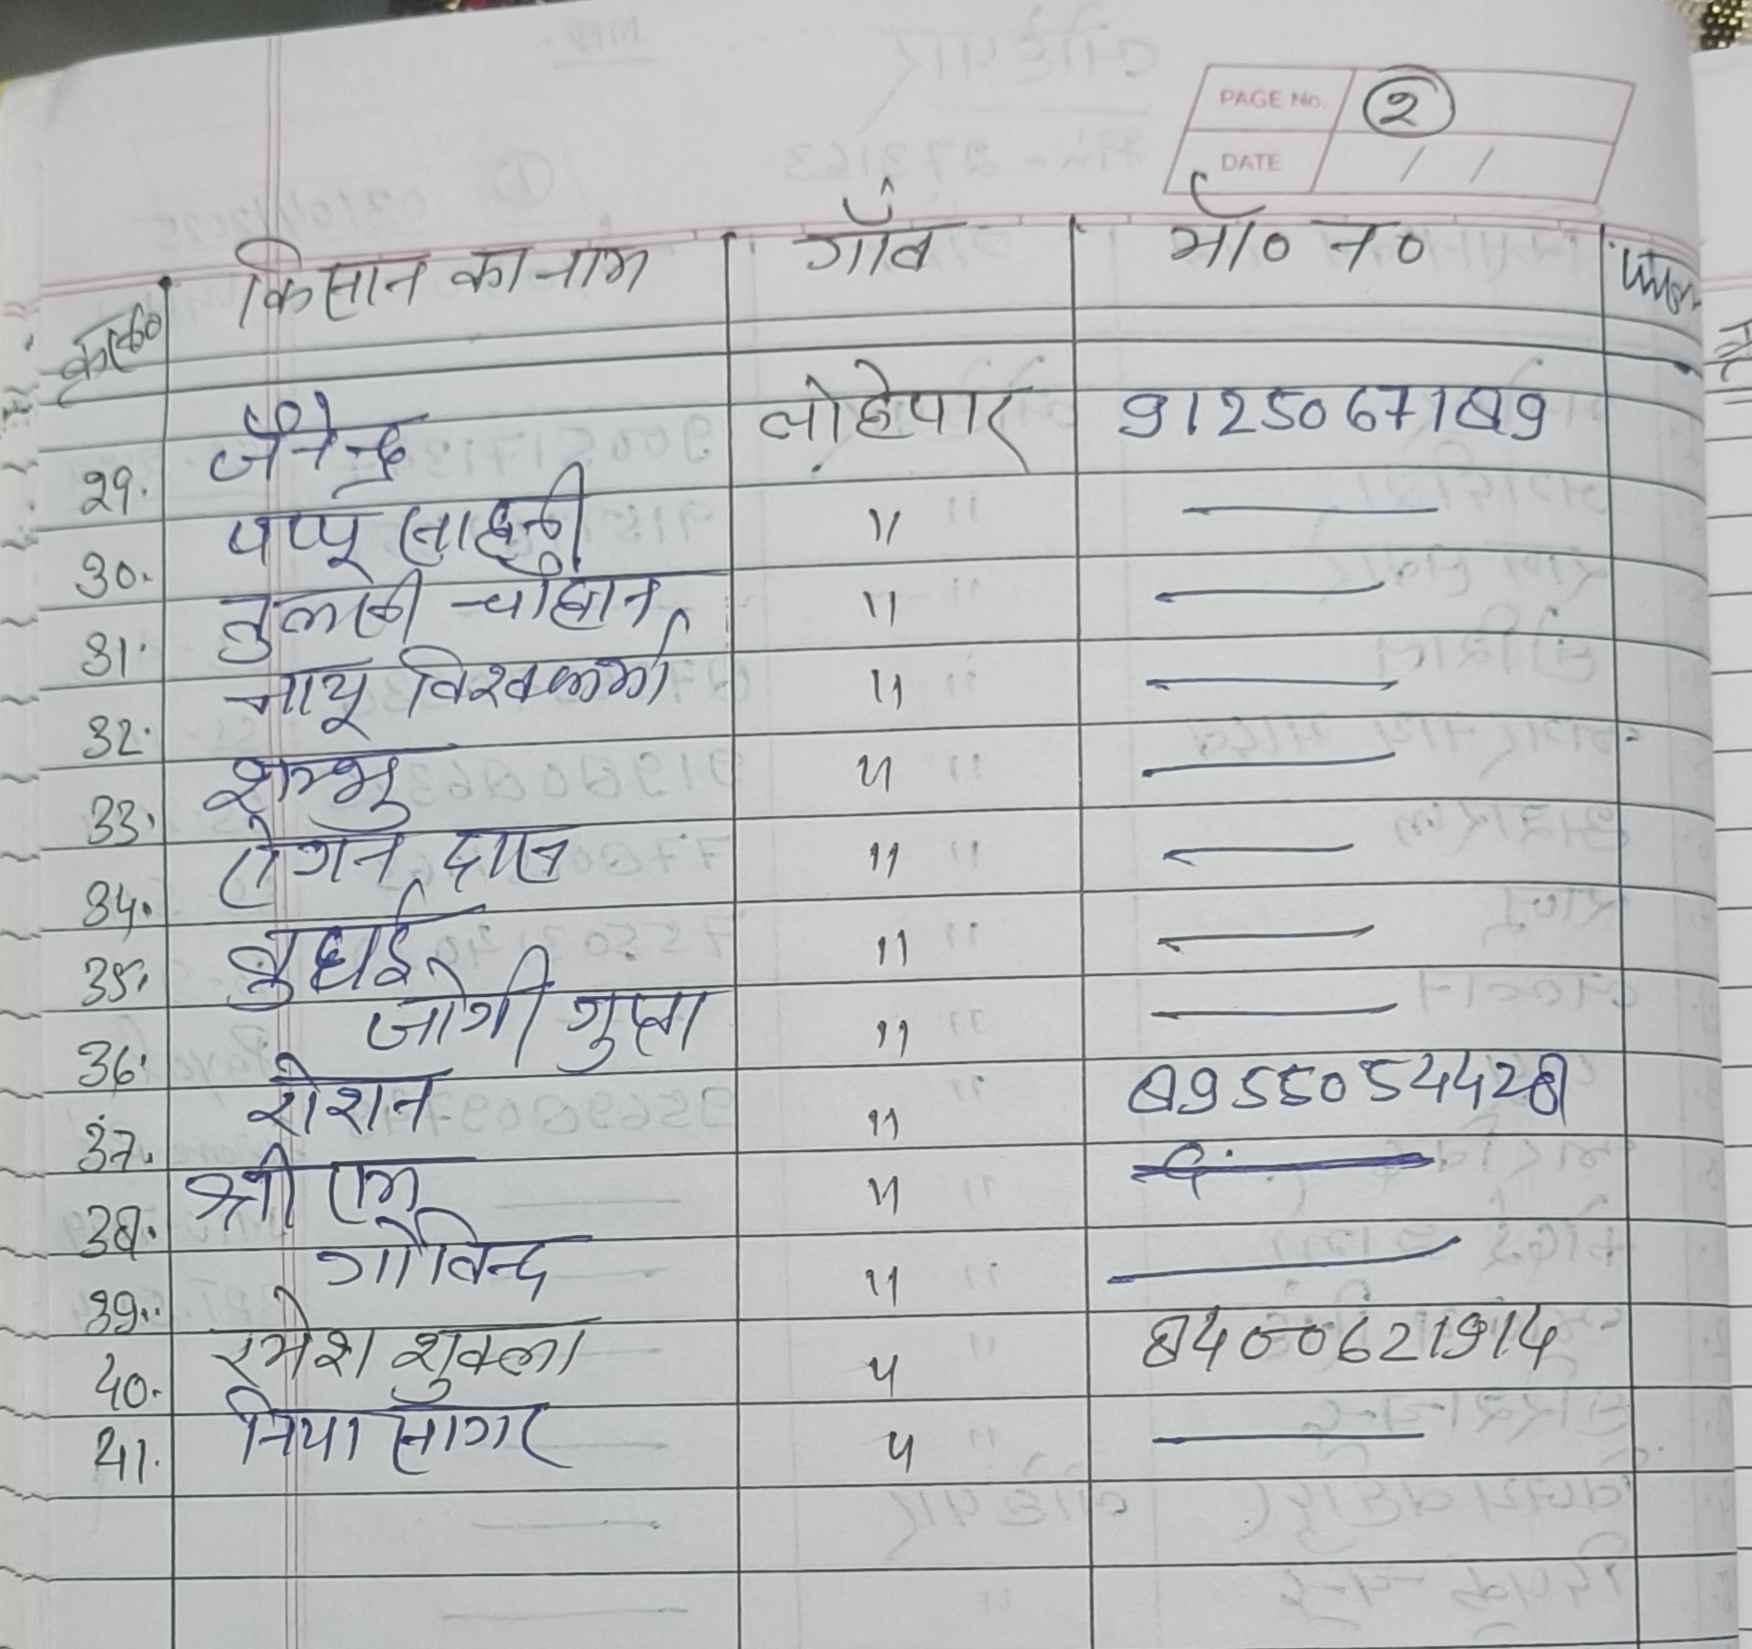 PAGE No. 2
DATE / /
क्र०सं० किसान का नाम गाँव मो० न०
29. जैनेन्द्र लोहेपार 9125067189
30. पप्पू साहनी " —
31. तुलसी चौहान " —
32. नाथू विश्वकर्मा " —
33. शम्भु " —
34. दास " —
35. " —
36. जोगी गुप्ता " —
37. रोशन " 8955054428
38. श्री राम " —
39. गोविन्द " —
40. रमेश शुक्ला " 8400621914
41. विधा सागर " —